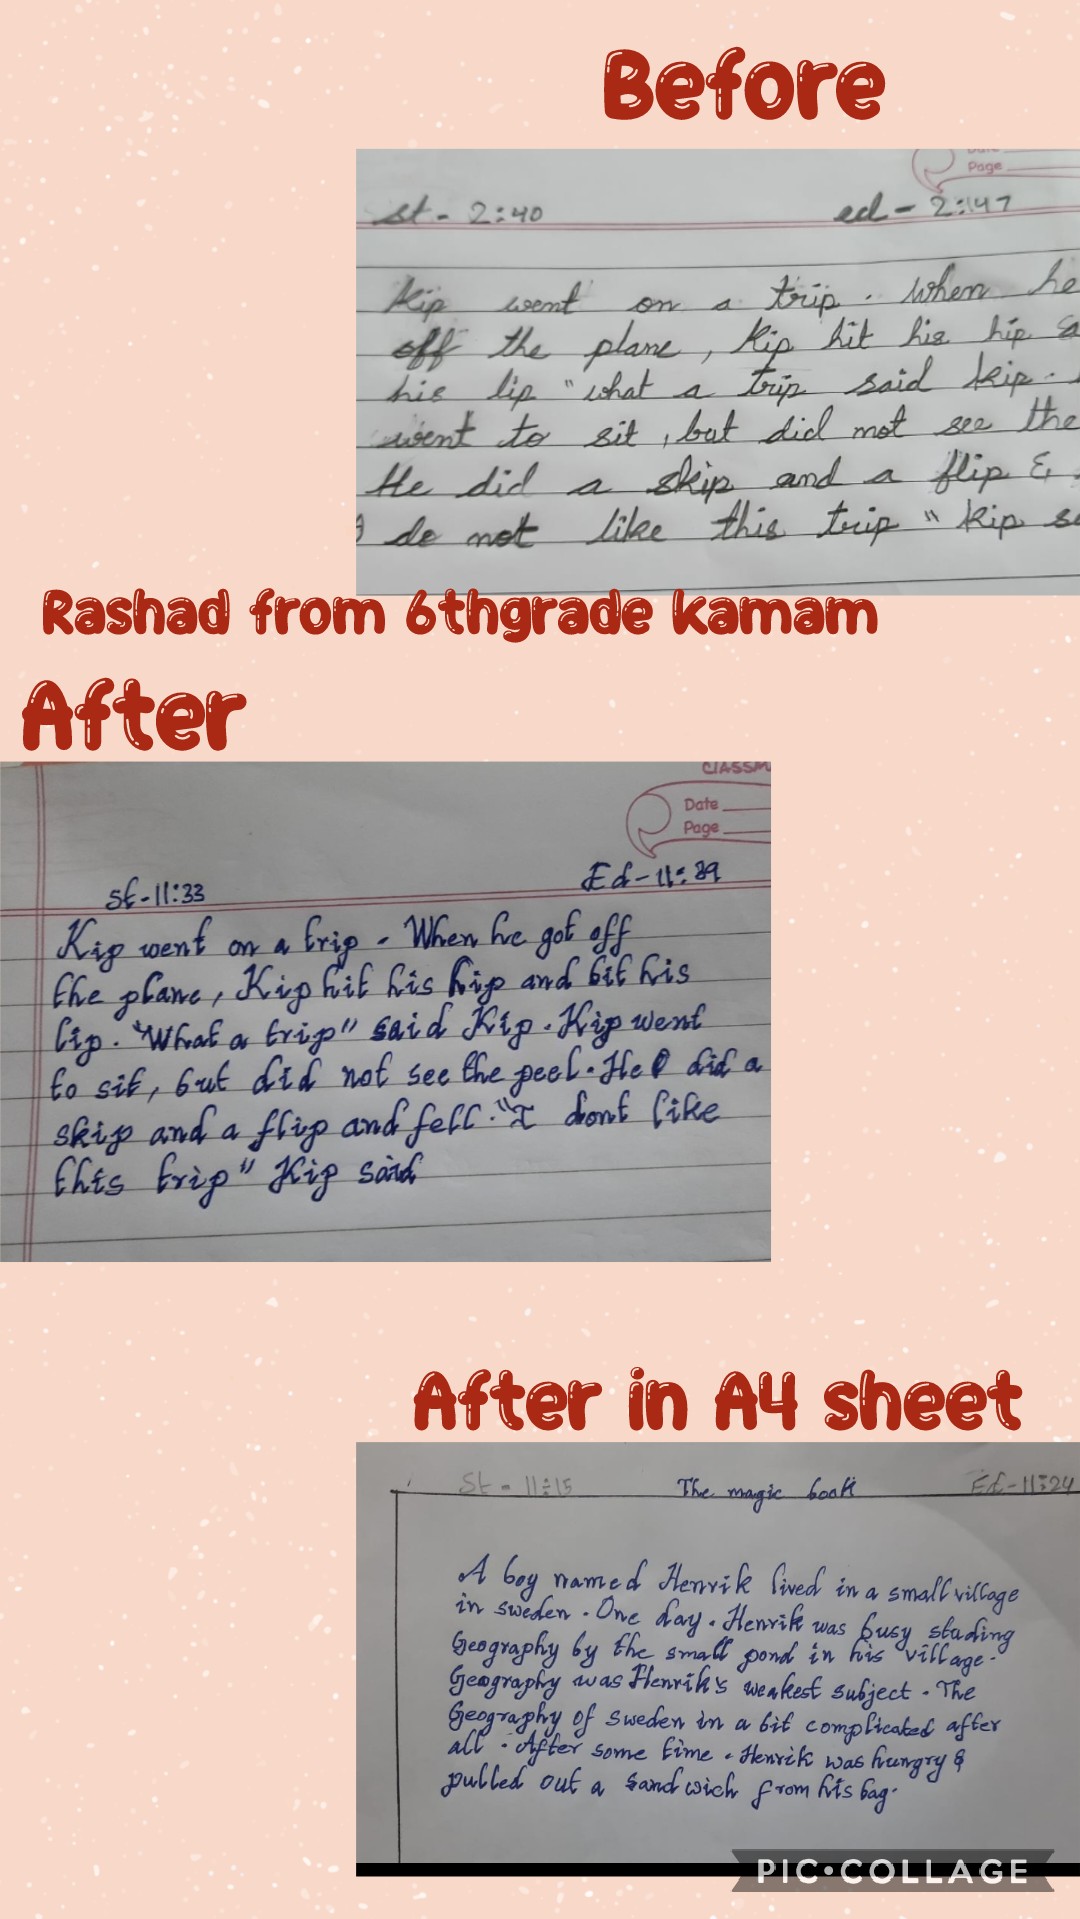 Before
Page
st - 2:40 ed - 2:47
Kip went on a trip. When he
off the plane, Kip hit his hip
his lip "what a trip said kip.
went to sit, but did not see the
He did a skip and a flip &
I do not like this trip" kip
Rashad from 6thgrade kamam
After
Date
Page
St-11:33 Ed-11:39
Kip went on a trip. When he got off
the plane, Kip hit his hip and bit his
lip. "What a trip" said Kip. Kip went
to sit, but did not see the peel. He did a
skip and a flip and fell. "I dont like
this trip" Kip said
After in A4 sheet
St - 11:15 The magic book Ed-11:24
A boy named Henrik lived in a small village
in sweden. One day. Henrik was busy studing
Geography by the small pond in his village.
Geography was Henrik's weakest subject. The
Geography of sweden in a bit complicated after
all. After some time. Henrik was hungry &
pulled out a sandwich from his bag.
PIC•COLLAGE